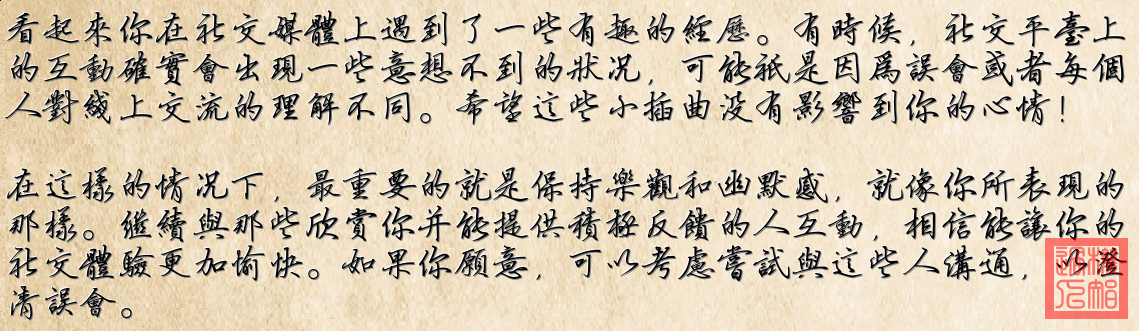 看起來你在社交媒體上遇到了一些有趣的經歷。有時候，社交平臺上
的互動確實會出現一些意想不到的狀况，可能衹是因爲誤會或者每個
人對綫上交流的理解不同。希望這些小插曲没有影響到你的心情！
在這樣的情况下，最重要的就是保持樂觀和幽默感，就像你所表現的
那樣。繼續與那些欣賞你并能提供積極反饋的人互動，相信能讓你的
社交體驗更加愉快。如果你願意，可以考慮嘗試與這些人溝通，以澄
清誤會。